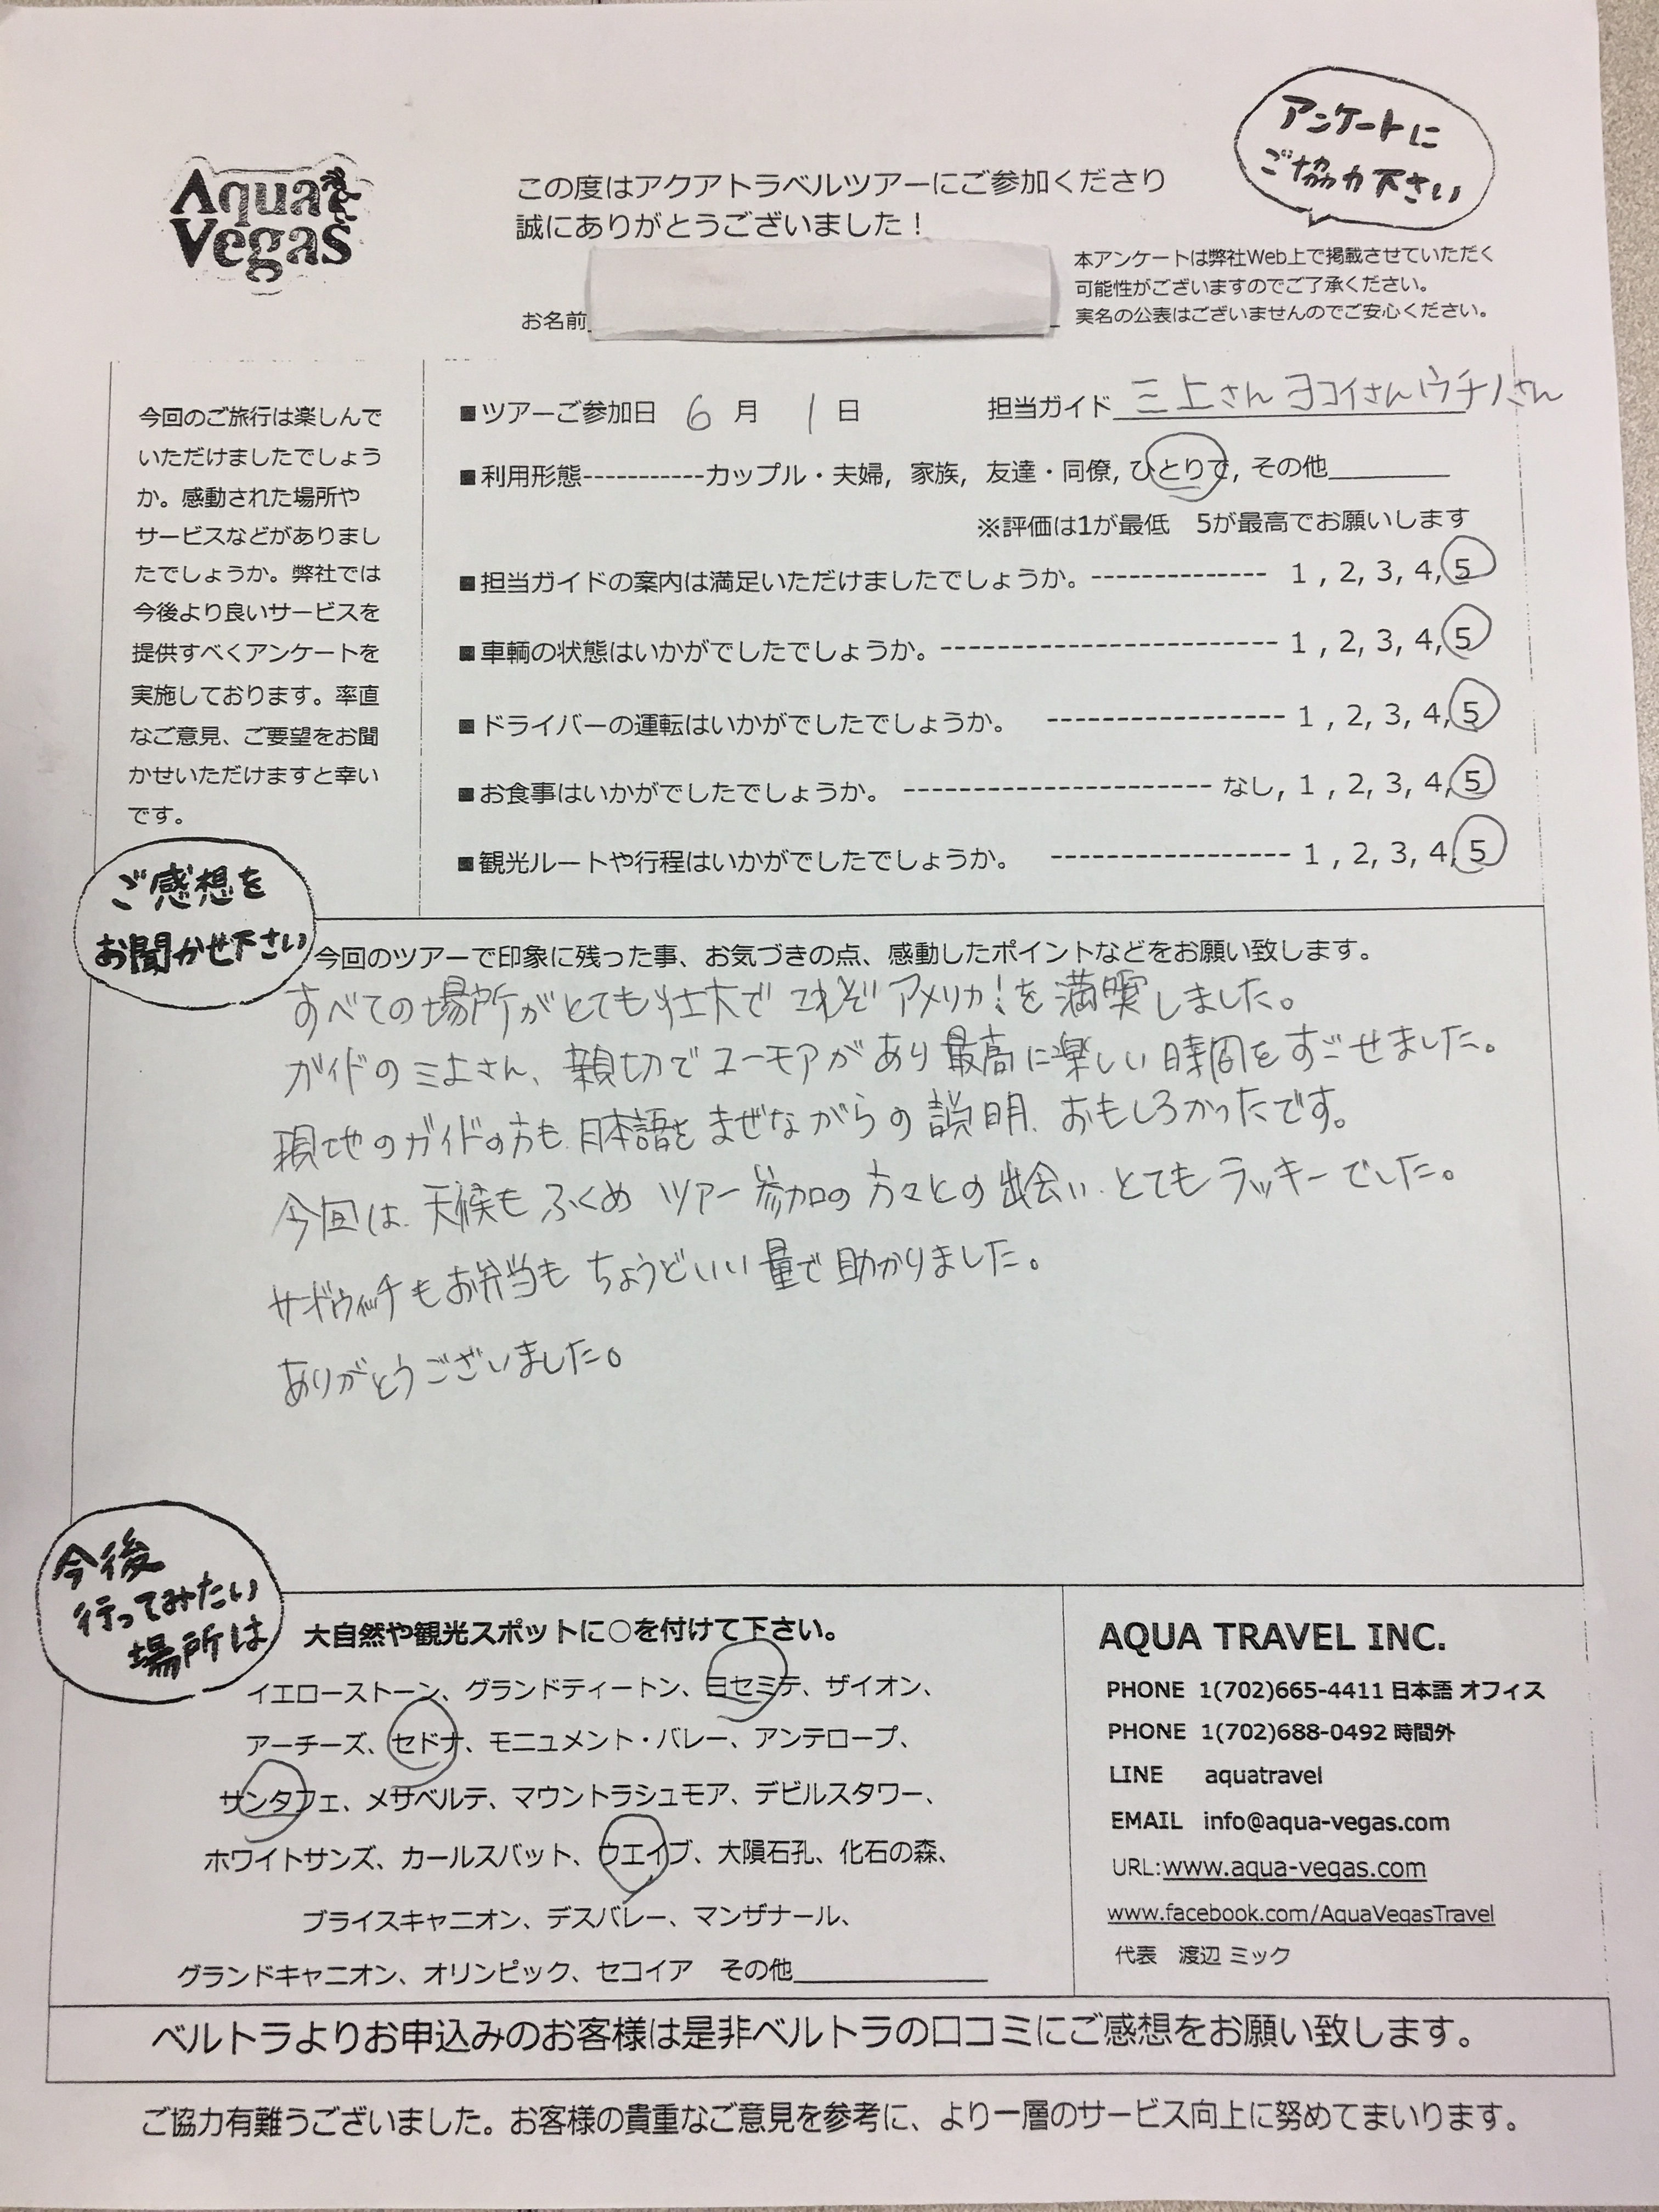 Aqua
Vegas
この度はアクアトラベルツアーにご参加くださり
誠にありがとうございました！
アンケートに
ご協力下さい
本アンケートは弊社Web上で掲載させていただく
可能性がございますのでご了承ください。
実名の公表はございませんのでご安心ください。
お名前
今回のご旅行は楽しんで
いただけましたでしょう
か。感動された場所や
サービスなどがありまし
たでしょうか。弊社では
今後より良いサービスを
提供すべくアンケートを
実施しております。率直
なご意見、ご要望をお聞
かせいただけますと幸い
です。
■ツアーご参加日 6 月 1 日 担当ガイド 三上さん ヨコイさん ウチノさん
■利用形態-----------カップル・夫婦, 家族, 友達・同僚, ひとりで, その他________
※評価は1が最低 5が最高でお願いします
■担当ガイドの案内は満足いただけましたでしょうか。-------------- 1 , 2, 3, 4, 5
■車輌の状態はいかがでしたでしょうか。------------------------ 1 , 2, 3, 4, 5
■ドライバーの運転はいかがでしたでしょうか。 ----------------- 1 , 2, 3, 4, 5
■お食事はいかがでしたでしょうか。 ---------------------- なし, 1 , 2, 3, 4, 5
■観光ルートや行程はいかがでしたでしょうか。 ----------------- 1 , 2, 3, 4, 5
ご感想を
お聞かせ下さい
今回のツアーで印象に残った事、お気づきの点、感動したポイントなどをお願い致します。
すべての場所がとても壮大で これぞ アメリカ！を 満喫しました。
ガイドの三上さん、親切でユーモアがあり最高に楽しい時間をすごせました。
現地のガイドの方も、日本語をまぜながらの説明、おもしろかったです。
今回は、天候もふくめ ツアー参加の方々との出会い、とてもラッキーでした。
サンドウィッチもお弁当も ちょうどいい量で助かりました。
ありがとうございました。
今後
行ってみたい
場所は
大自然や観光スポットに○を付けて下さい。
イエローストーン、グランドティートン、ヨセミテ、ザイオン、
アーチーズ、セドナ、モニュメント・バレー、アンテロープ、
サンタフェ、メサベルテ、マウントラシュモア、デビルスタワー、
ホワイトサンズ、カールスバット、ウエイブ、大隕石孔、化石の森、
ブライスキャニオン、デスバレー、マンザナール、
グランドキャニオン、オリンピック、セコイア その他____________
AQUA TRAVEL INC.
PHONE 1(702)665-4411 日本語 オフィス
PHONE 1(702)688-0492 時間外
LINE aquatravel
EMAIL info@aqua-vegas.com
URL:www.aqua-vegas.com
www.facebook.com/AquaVegasTravel
代表 渡辺 ミック
ベルトラよりお申込みのお客様は是非ベルトラの口コミにご感想をお願い致します。
ご協力有難うございました。お客様の貴重なご意見を参考に、より一層のサービス向上に努めてまいります。